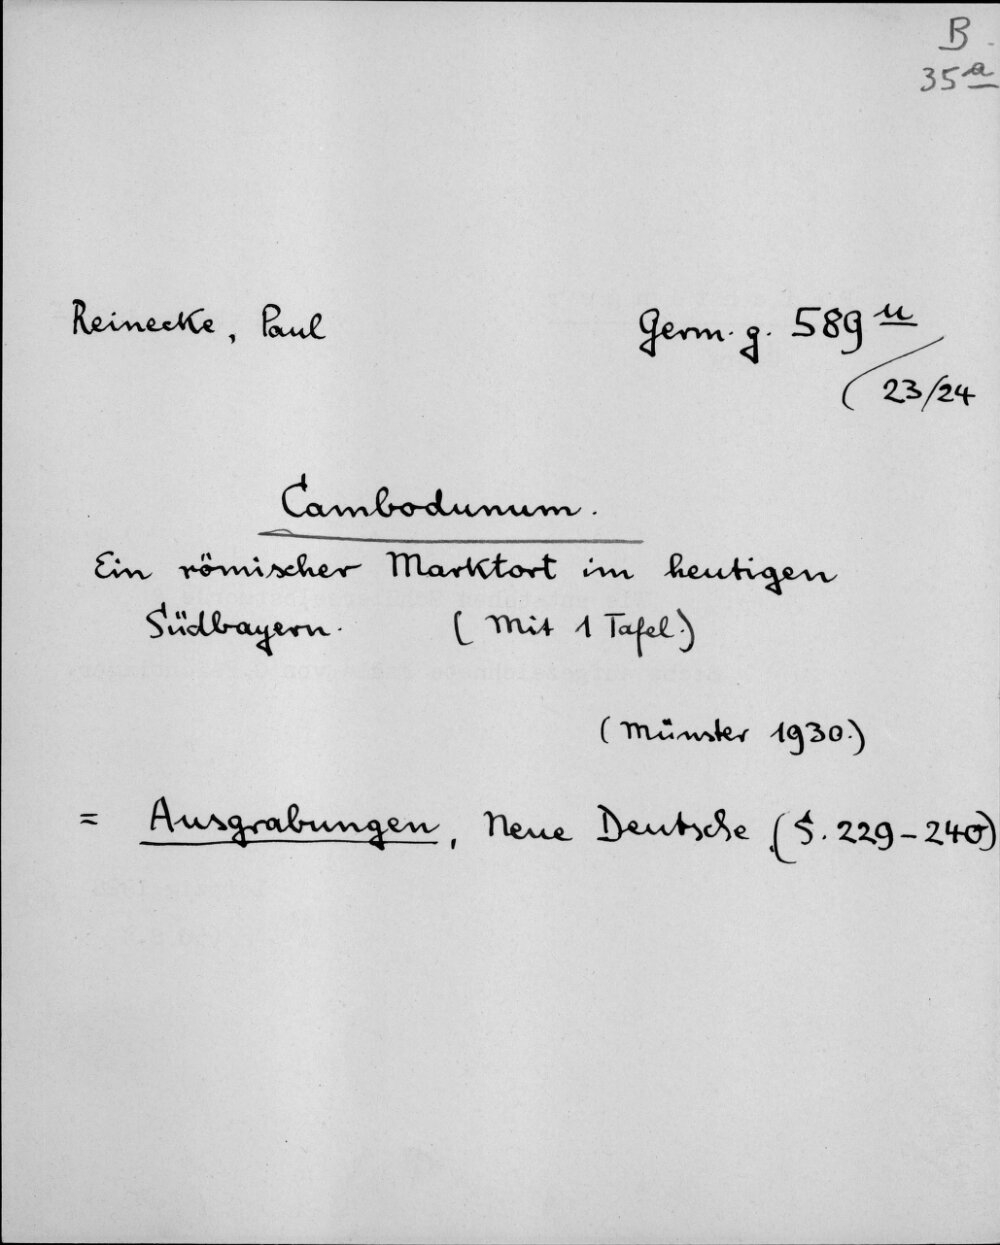 B.
35a
Reinecke, Paul
Germ. g. 589 u
/ 23/24
Cambodunum.
Ein römischer Marktort im heutigen
Südbayern. (Mit 1 Tafel.)
(Münster 1930.)
= Ausgrabungen, Neue Deutsche (S. 229-240)